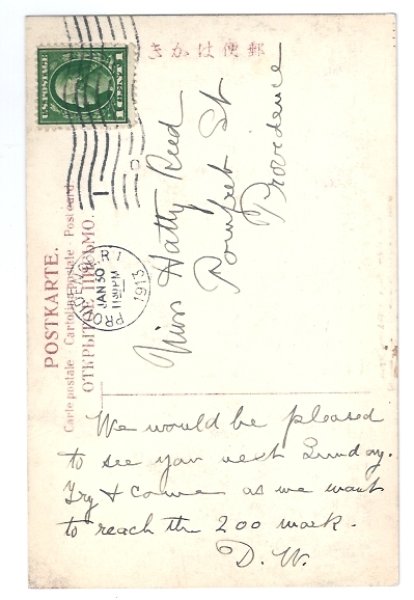 U.S. POSTAGE
1 CENT 1
きがは便郵
1
PROVIDENCE, R.I.
JAN 30
11:30 PM
1913
POSTKARTE.
Carte postale - Cartolina postale - Postcard
ОТКРЫТОЕ ПИСЬМО.
Miss Hatty Reed
Pomfret St
Providence
We would be pleased
to see you next Sunday.
Try & come as we want
to reach the 200 mark.
D. W.